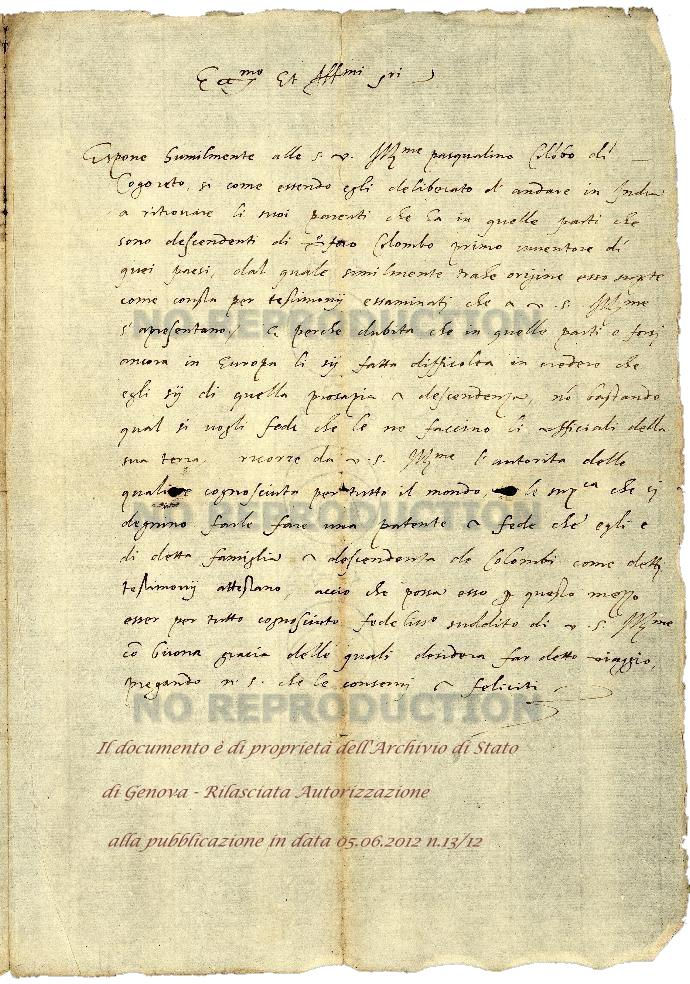 Ecc.mo Et Ill.mi Sri
Espone humilmente alle s. v. Ill.me pasqualino Colõbo di
Cogoreto, si come essendo egli deliberato d'andare in India
a ritrovare li suoi parenti che ha in quelle parti che
sono descendenti di Colombo primo inventore di
quei paesi, dal quale similmente trahe origine esso
come consta per testimonij essaminati che a v. s. Ill.me
s'apresentano, E perche dubita che in quelle parti e forsi
ancora in Europa li sij fatta difficolta in credere che
egli sij di quella prosapia e descendenza, nõ bastando
qual si vogli fede che le ne faccino li officiali della
sua terra, ricorre da v. s. Ill.me l'autorita delle
quali e cognosciuta per tutto il mondo, le che si
degnino farle fare una patente e fede che egli e
di detta famiglia e descendenza de Colombi come detti
testimonij attestano, accio che possa esso questo mezzo
esser per tutto cognosciuto fedeliss.o suddito di v. s. Ill.me
cõ buona gracia delli quali desidera far detto viaggio,
pregando n. s. che le conservi e feliciti
NO REPRODUCTION
NO REPRODUCTION
NO REPRODUCTION
Il documento è di proprietà dell'Archivio di Stato
di Genova - Rilasciata Autorizzazione
alla pubblicazione in data 05.06.2012 n.13/12